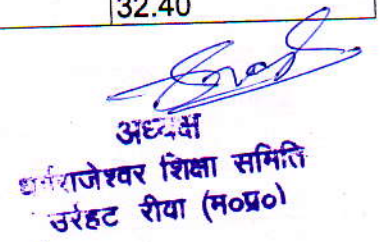 32.40
अध्यक्ष
धर्मराजेश्वर शिक्षा समिति
उरंहट रीवा (म०प्र०)